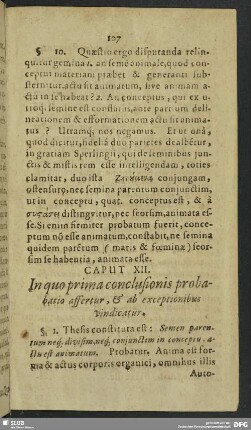 107
§ 10. Quæstio ergo disputanda relin-
quitur gemina 1. an semē animale, quod con-
ceptui materiam præbet & generanti sub-
sternitur, actu sit animatum, sive animam a-
ctu in se habeat? 2. An conceptus, qui ex u-
troq; semine est constans, ante partium deli-
neationem & efformationem actu sit anima-
tus? Utramq; nos negamus. Et ut unâ,
quod dicitur, fideliâ duo parietes dealbētur,
in gratiam Sperlingii, qui de seminibus jun-
ctis & mistis rem esse intelligendam, toties
clamitat, duo ista conjungam,
ostensurꝰ, nec semina parentum conjunctim,
ut in conceptu, quat. conceptus est, & à
distingvitur, nec seorsim, animata es-
se. Si enim semper probatum fuerit, conce-
ptum nō esse animatum, constabit, ne semina
quidem parētum (maris & fœminæ) seor-
sim se habentia, animata esse.
CAPUT XII.
In quo prima conclusionis proba-
batio affertur, & ab exceptionibus
vindicatur.
§. 1. Thesis constituta est: Semen paren-
tum neq; divisim, neq; conjunctim in conceptu, a-
ctu est animatum. Probatur. Anima est for-
ma & actus corporis organici, omnibus illis
Auto-